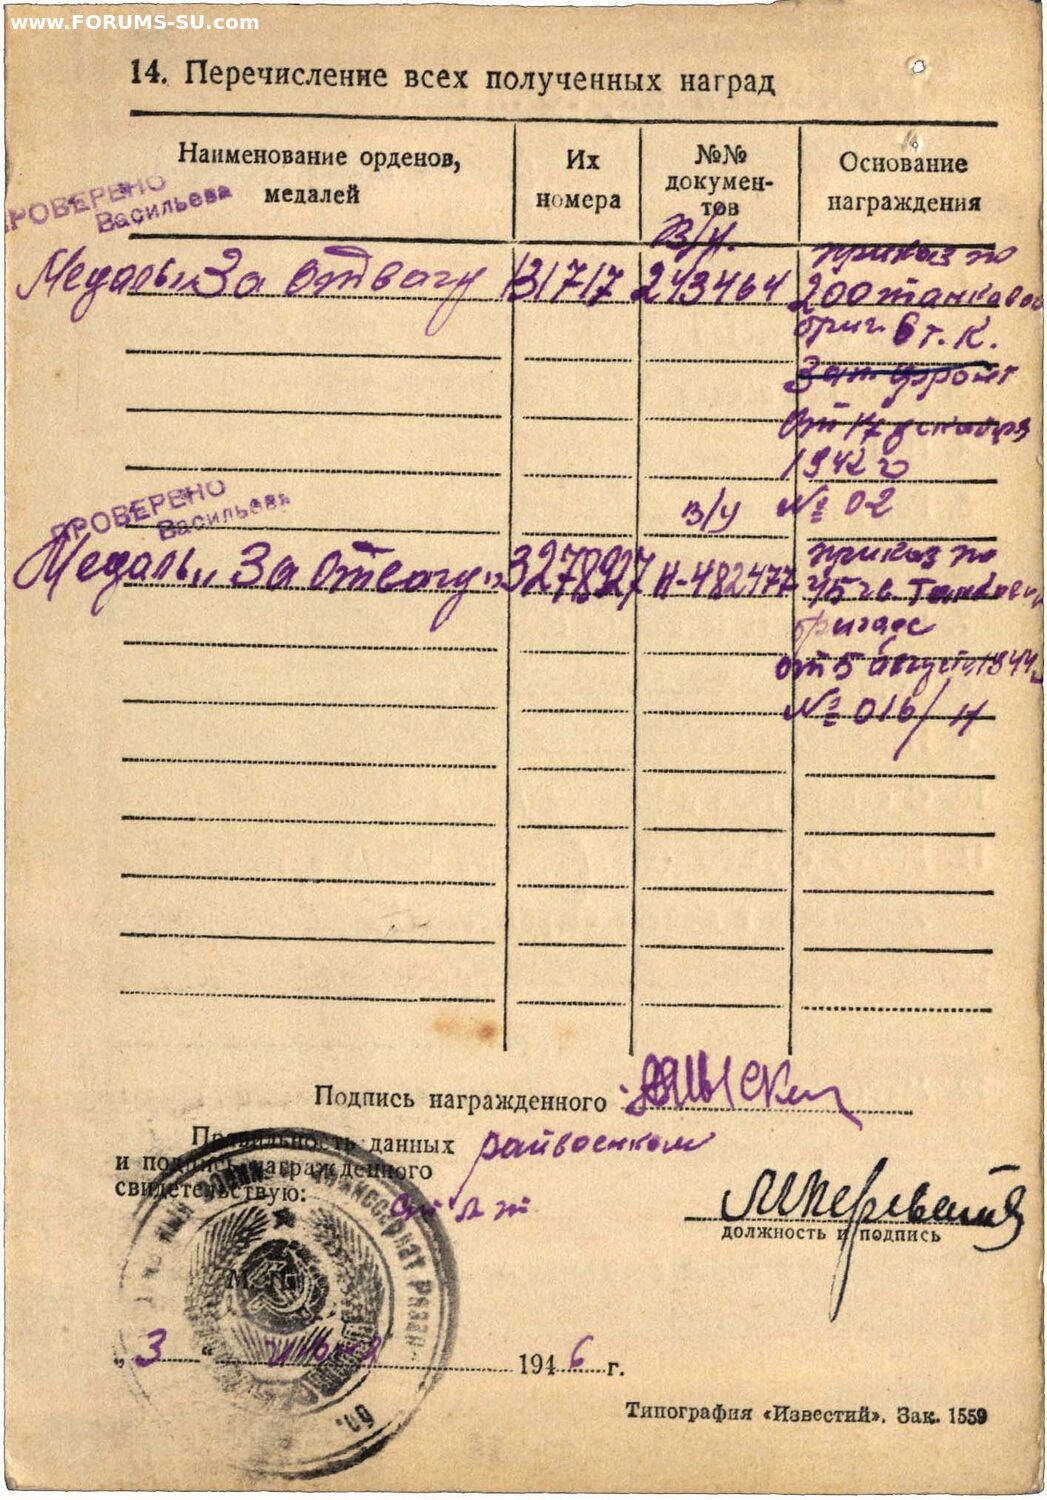 www.FORUMS-SU.com
14. Перечисление всех полученных наград
Наименование орденов, медалей
Их номера
№№ докумен-тов
Основание награждения
ПРОВЕРЕНО
Васильева
Медаль „За отвагу
31717
в/у.
243464
приказ по
200 танковой
бриг. 6 т. К.
Зап. фронт
от 17 декабря
1942 г
№ 02
ПРОВЕРЕНО
Васильева
Медаль „За отвагу"
3278927
в/у
Н-482477
приказ по
45 гв. Танковой
бригаде
от 5 августа 1944 г
№ 016/н
Подпись награжденного
Правильность данных
и подпись награжденного
свидетельствую:
райвоенком
должность и подпись
М. П.
„ 3 “ июня 1946 г.
Типография «Известий». Зак. 1559